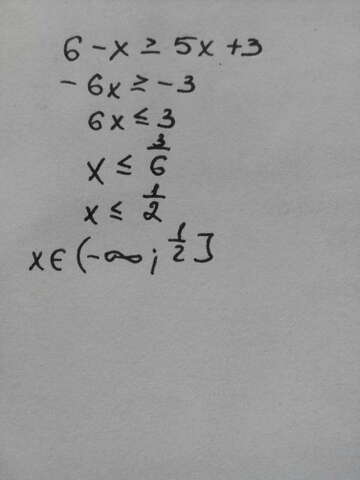 6 - x ≥ 5x + 3
- 6x ≥ - 3
6x ≤ 3
x ≤ 3/6
x ≤ 1/2
x ∈ (-∞; 1/2]